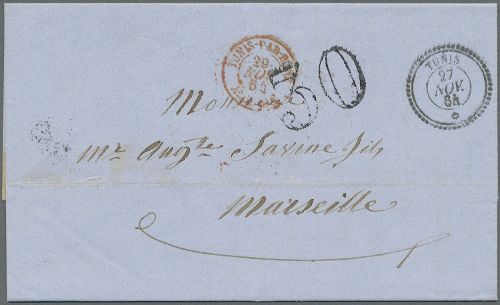 29
NOV.
64
30
TUNIS
27
NOV.
64
Monsieur
Mr Augte Savine fils
Marseille